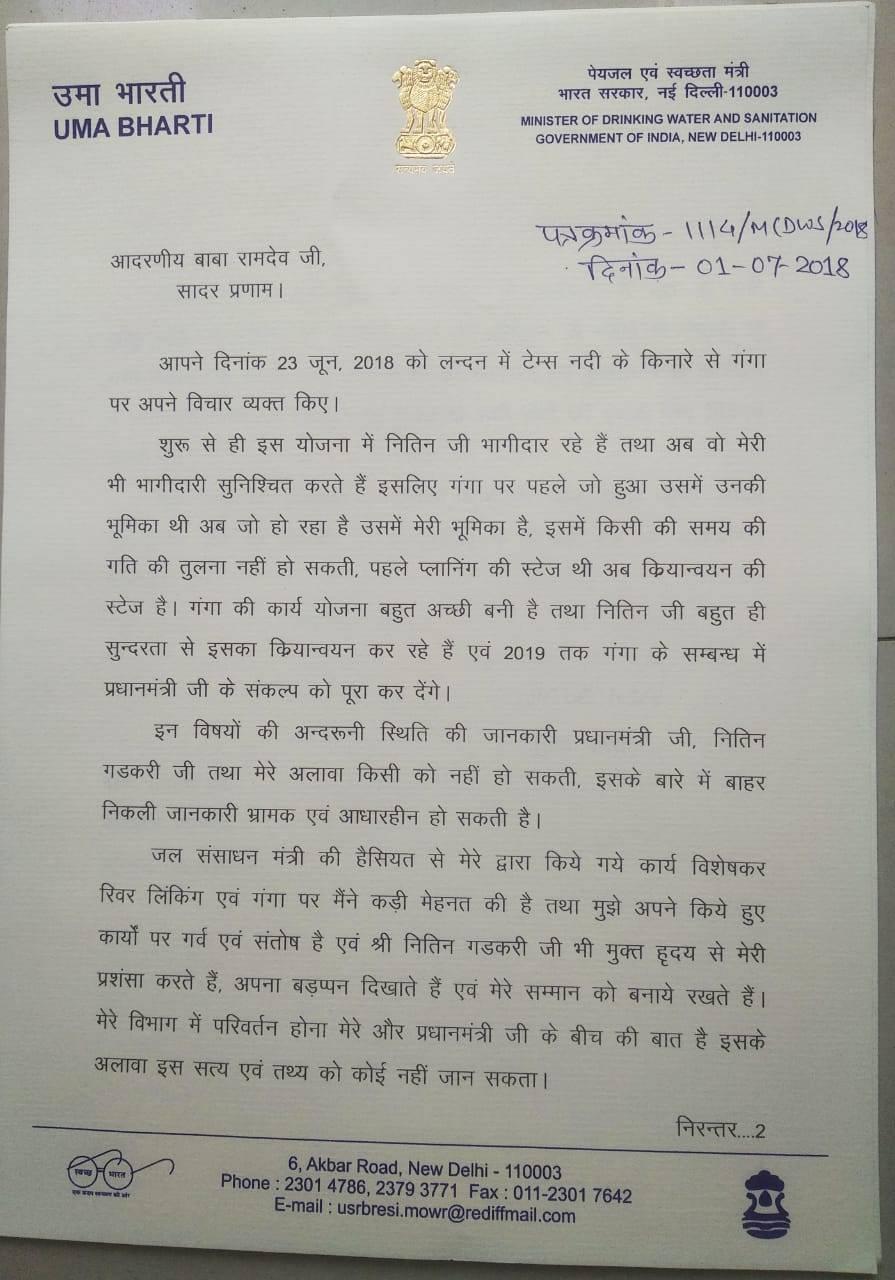 उमा भारती
UMA BHARTI
सत्यमेव जयते
पेयजल एवं स्वच्छता मंत्री
भारत सरकार, नई दिल्ली-110003
MINISTER OF DRINKING WATER AND SANITATION
GOVERNMENT OF INDIA, NEW DELHI-110003
पत्रक्रमांक - 1114/M(DWS/2018
दिनांक - 01-07-2018
आदरणीय बाबा रामदेव जी,
सादर प्रणाम।
आपने दिनांक 23 जून, 2018 को लन्दन में टेम्स नदी के किनारे से गंगा
पर अपने विचार व्यक्त किए।
शुरू से ही इस योजना में नितिन जी भागीदार रहे हैं तथा अब वो मेरी
भी भागीदारी सुनिश्चित करते हैं इसलिए गंगा पर पहले जो हुआ उसमें उनकी
भूमिका थी अब जो हो रहा है उसमें मेरी भूमिका है, इसमें किसी की समय की
गति की तुलना नहीं हो सकती, पहले प्लानिंग की स्टेज थी अब क्रियान्वयन की
स्टेज है। गंगा की कार्य योजना बहुत अच्छी बनी है तथा नितिन जी बहुत ही
सुन्दरता से इसका क्रियान्वयन कर रहे हैं एवं 2019 तक गंगा के सम्बन्ध में
प्रधानमंत्री जी के संकल्प को पूरा कर देंगे।
इन विषयों की अन्दरूनी स्थिति की जानकारी प्रधानमंत्री जी, नितिन
गडकरी जी तथा मेरे अलावा किसी को नहीं हो सकती, इसके बारे में बाहर
निकली जानकारी भ्रामक एवं आधारहीन हो सकती है।
जल संसाधन मंत्री की हैसियत से मेरे द्वारा किये गये कार्य विशेषकर
रिवर लिंकिंग एवं गंगा पर मैंने कड़ी मेहनत की है तथा मुझे अपने किये हुए
कार्यों पर गर्व एवं संतोष है एवं श्री नितिन गडकरी जी भी मुक्त हृदय से मेरी
प्रशंसा करते हैं, अपना बड़प्पन दिखाते हैं एवं मेरे सम्मान को बनाये रखते हैं।
मेरे विभाग में परिवर्तन होना मेरे और प्रधानमंत्री जी के बीच की बात है इसके
अलावा इस सत्य एवं तथ्य को कोई नहीं जान सकता।
निरन्तर....2
स्वच्छ भारत
एक कदम स्वच्छता की ओर
6, Akbar Road, New Delhi - 110003
Phone : 2301 4786, 2379 3771 Fax : 011-2301 7642
E-mail : usrbresi.mowr@rediffmail.com